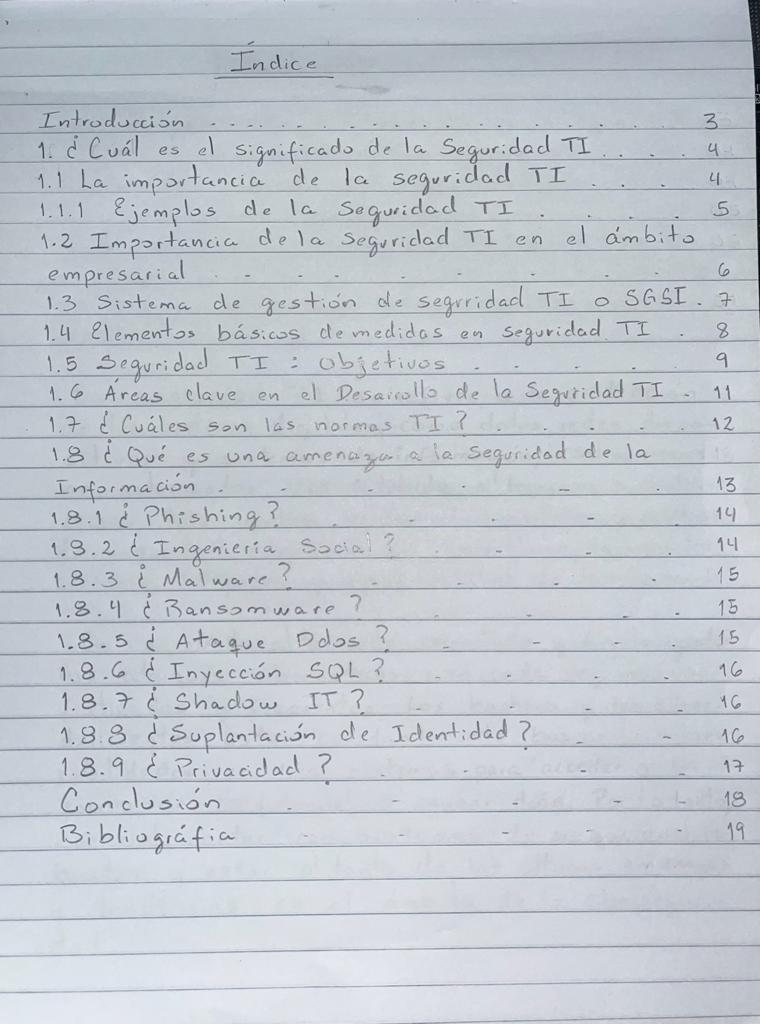 Índice
Introducción .................. 3
1. ¿Cuál es el significado de la Seguridad TI .... 4
1.1 La importancia de la seguridad TI .... 4
1.1.1 Ejemplos de la Seguridad TI .... 5
1.2 Importancia de la Seguridad TI en el ámbito
empresarial . - . . . . . 6
1.3 Sistema de gestión de segrridad TI o SGSI. 7
1.4 Elementos básicos de medidas en seguridad TI . 8
1.5 Seguridad TI : Objetivos . . . . 9
1.6 Áreas clave en el Desarrollo de la Seguridad TI - 11
1.7 ¿Cuáles son las normas TI? . . . . 12
1.8 ¿Qué es una amenaza a la Seguridad de la
Información . - . . - . 13
1.8.1 ¿Phishing? . . - . 14
1.8.2 ¿Ingeniería Social? . - - . 14
1.8.3 ¿Malware? . . . . 15
1.8.4 ¿Ransomware? . . - . 15
1.8.5 ¿Ataque Ddos? - - - - 15
1.8.6 ¿Inyección SQL? . . - - 16
1.8.7 ¿Shadow IT? . - . - 16
1.8.8 ¿Suplantación de Identidad? - - 16
1.8.9 ¿Privacidad? . - - . 17
Conclusión . - - - - 18
Bibliográfia - - - - - 19